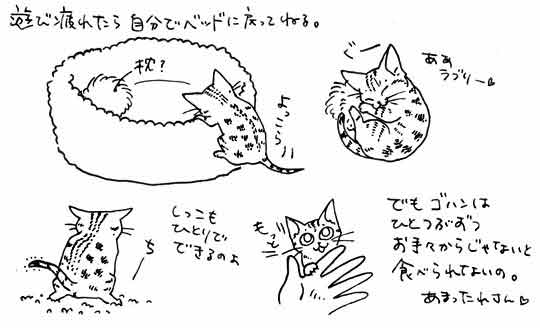 遊び疲れたら自分でベッドに戻ってねる。
枕?
よっこらへ
ぐー
ああ
ラブリー♡
しっこも
ひとりで
できるのよ
ち
もっと
でも ゴハンは
ひとつぶずつ
お手々からじゃないと
食べられないの。
あまったれさん♡